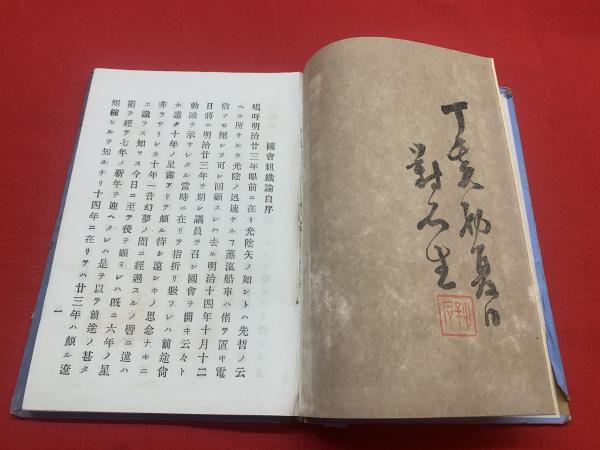 丁亥初夏日
對石生
國會組織論自序
嗚呼明治廿三年眼前ニ在リ光陰矢ノ如シトハ先哲ノ云
ヘル所ナルカ光陰ノ迅速ナルヿ蒸滊船車ハ偖テ置キ電
信テモ壓シツ可シ回顧スレハ去ル明治十四年十月十二
日將ニ明治廿三年ヲ期シ議員ヲ召シ國會ヲ開キ云々ト
勅諭ヲ示サレタル當時ニ在リテ指折リ數フレハ前途尙
ホ遠ク十年ノ星霜アリテ頗ル待シ遠シキノ思念ナキニ
非ラサリシカ十年一昔幻夢ノ間ニ經過スルノ喩ニ違ハ
ス識ラス知ラス今日ニ至テ後ヲ顧ミレハ既ニ六年ノ星
霜ヲ經テ七年ノ新年ヲ迎ヘタレハ是ヲ以テ前途ノ甚タ
短縮セルヲ知ルナリ十四年ニ在リテハ廿三年ハ頗ル遼
一